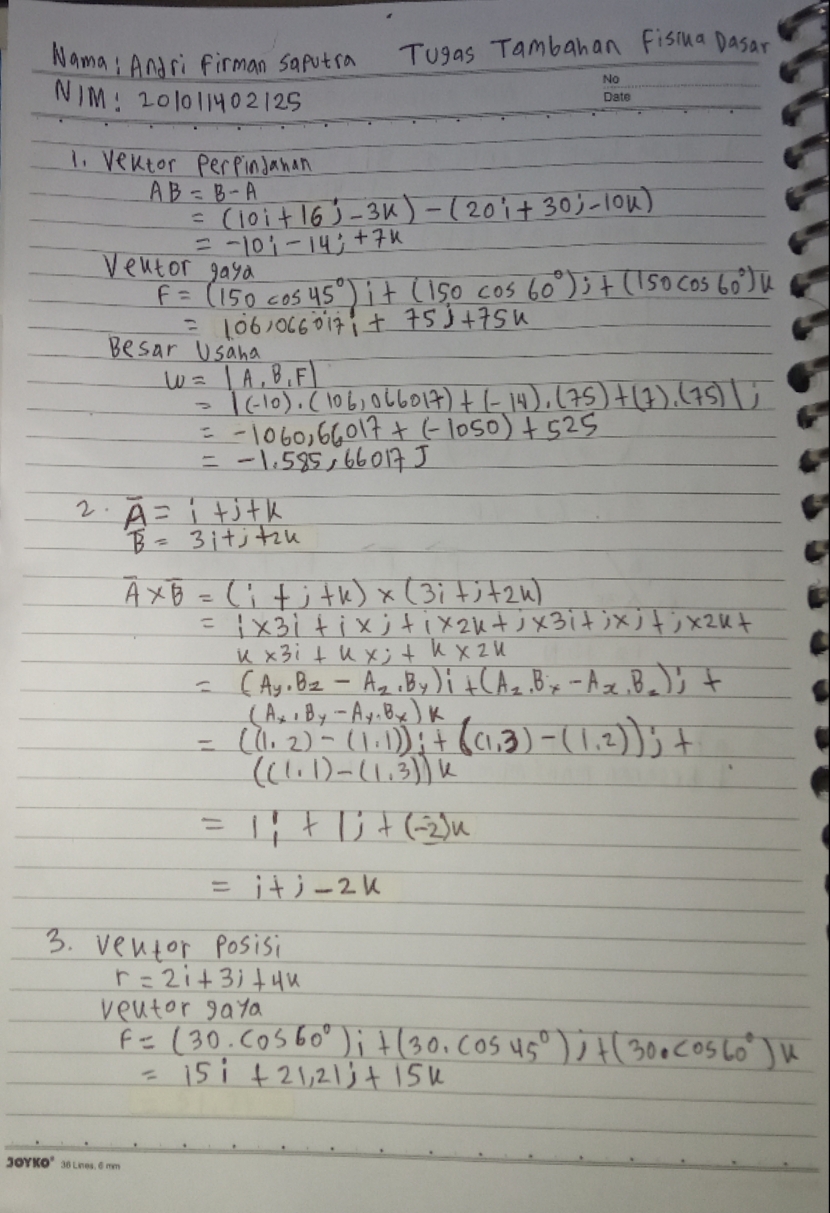 Nama : Andri Firman Saputra Tugas Tambahan Fisika Dasar
No
NIM : 201011402125
Date
1. Vektor Perpindahan
AB = B - A
= (10i + 16j - 3k) - (20i + 30j - 10k)
= -10i - 14j + 7k
Vektor gaya
F = (150 cos 45°)i + (150 cos 60°)j + (150 cos 60°)k
= 106,066017i + 75j + 75k
Besar Usaha
W = |A.B.F|
= |(-10).(106,066017) + (-14).(75) + (7).(75)|j
= -1060,66017 + (-1050) + 525
= -1.585,66017 J
2. A̅ = i + j + k
B̅ = 3i + j + 2k
A̅ x B̅ = (i + j + k) x (3i + j + 2k)
= i x 3i + i x j + i x 2k + j x 3i + j x j + j x 2k +
k x 3i + k x j + k x 2k
= (Ay.Bz - Az.By)i + (Az.Bx - Ax.Bz)j +
(Ax.By - Ay.Bx)k
= ((1.2) - (1.1))i + ((1.3) - (1.2))j +
((1.1) - (1.3))k
= 1i + 1j + (-2)k
= i + j - 2k
3. Vektor Posisi
r = 2i + 3j + 4k
Vektor gaya
F = (30.cos 60°)i + (30.cos 45°)j + (30.cos 60°)k
= 15i + 21,21j + 15k
JOYKO® 36 Lines, 6 mm